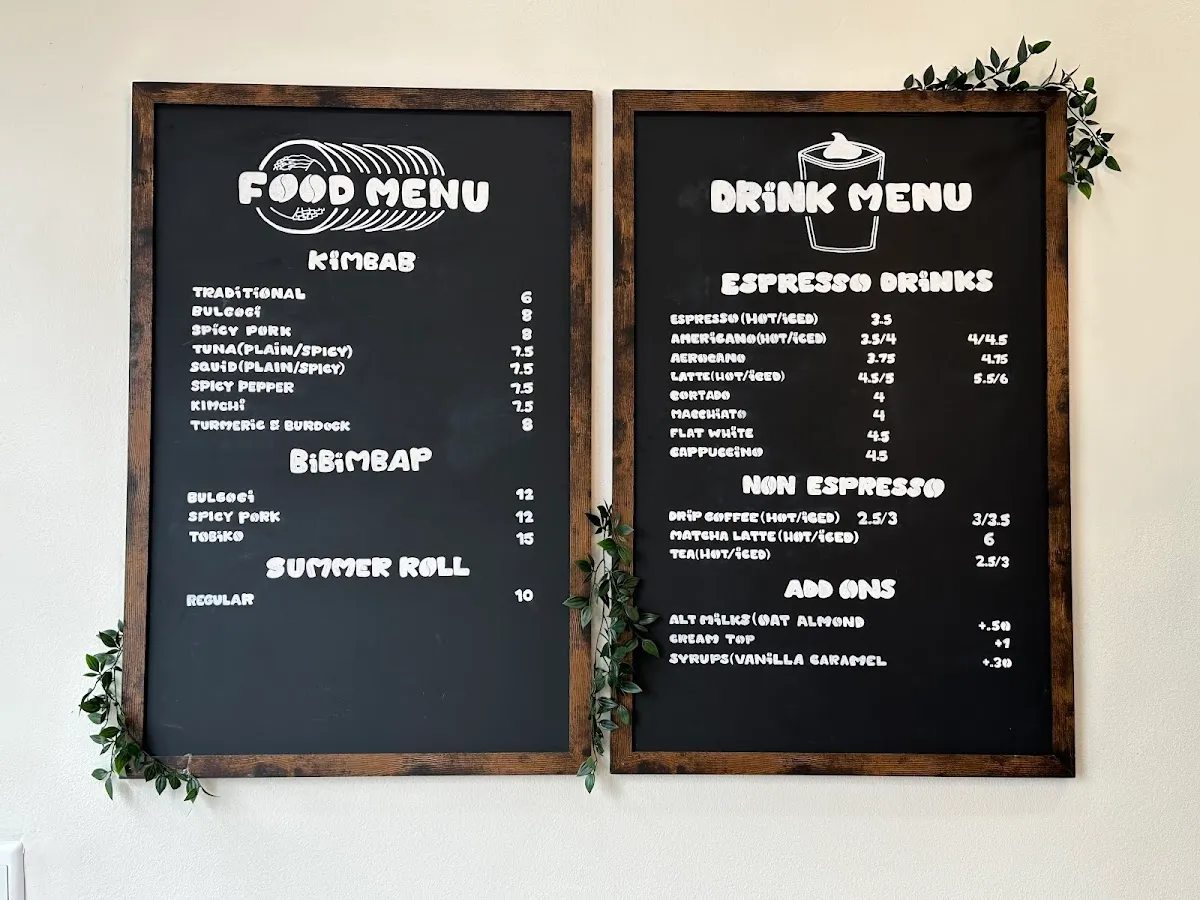 FOOD MENU
KIMBAB
TRADITIONAL 6
BULGOGI 8
SPICY PORK 8
TUNA(PLAIN/SPICY) 7.5
SQUID(PLAIN/SPICY) 7.5
SPICY PEPPER 7.5
KIMCHI 7.5
TURMERIC & BURDOCK 8
BIBIMBAP
BULGOGI 12
SPICY PORK 12
TOBIKO 15
SUMMER ROLL
REGULAR 10
DRINK MENU
ESPRESSO DRINKS
ESPRESSO (HOT/ICED) 3.5
AMERICANO(HOT/ICED) 3.5/4 4/4.5
AEROCANO 3.75 4.75
LATTE(HOT/ICED) 4.5/5 5.5/6
CORTADO 4
MACCHIATO 4
FLAT WHITE 4.5
CAPPUCCINO 4.5
NON ESPRESSO
DRIP COFFEE (HOT/ICED) 2.5/3 3/3.5
MATCHA LATTE (HOT/ICED) 6
TEA(HOT/ICED) 2.5/3
ADD ONS
ALT MILKS(OAT ALMOND +.50
CREAM TOP +1
SYRUPS(VANILLA CARAMEL +.30